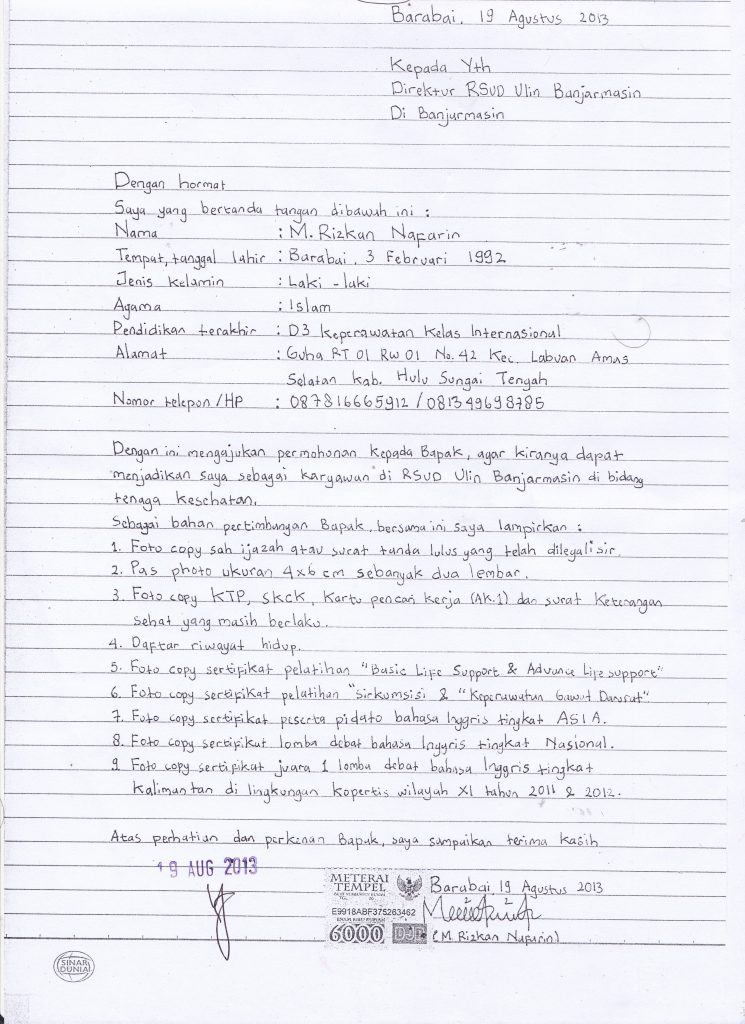 Barabai, 19 Agustus 2013
Kepada Yth
Direktur RSUD Ulin Banjarmasin
Di Banjarmasin
Dengan hormat
Saya yang bertanda tangan dibawah ini :
Nama : M. Rizkan Nafarin
Tempat, tanggal lahir : Barabai, 3 Februari 1992
Jenis kelamin : Laki - laki
Agama : Islam
Pendidikan terakhir : D3 Keperawatan Kelas Internasional
Alamat : Guha RT 01 RW 01 No. 42 Kec. Labuan Amas
Selatan Kab. Hulu Sungai Tengah
Nomor telepon / HP : 087816665912 / 081349698785
Dengan ini mengajukan permohonan kepada Bapak, agar kiranya dapat
menjadikan saya sebagai karyawan di RSUD Ulin Banjarmasin di bidang
tenaga kesehatan.
Sebagai bahan pertimbangan Bapak, bersama ini saya lampirkan :
1. Foto copy sah ijazah atau surat tanda lulus yang telah dilegalisir.
2. Pas photo ukuran 4x6 cm sebanyak dua lembar.
3. Foto copy KTP, SKCK, Kartu pencari kerja (AK.1) dan surat Keterangan
sehat yang masih berlaku.
4. Daftar riwayat hidup.
5. Foto copy sertifikat pelatihan "Basic Life Support & Advance Life support"
6. Foto copy sertifikat pelatihan "Sirkumsisi & "Keperawatan Gawat Darurat"
7. Foto copy sertifikat peserta pidato bahasa Inggris tingkat ASIA.
8. Foto copy sertifikat lomba debat bahasa Inggris tingkat Nasional.
9 Foto copy sertifikat juara 1 lomba debat bahasa Inggris tingkat
Kalimantan di lingkungan kopertis wilayah XI tahun 2011 & 2012.
Atas perhatian dan perkenan Bapak, saya sampaikan terima kasih
19 AUG 2013
METERAI
TEMPEL
Barabai, 19 Agustus 2013
E9918ABF375263462
6000 DJP
(M Rizkan Nafarin)
SINAR
DUNIA